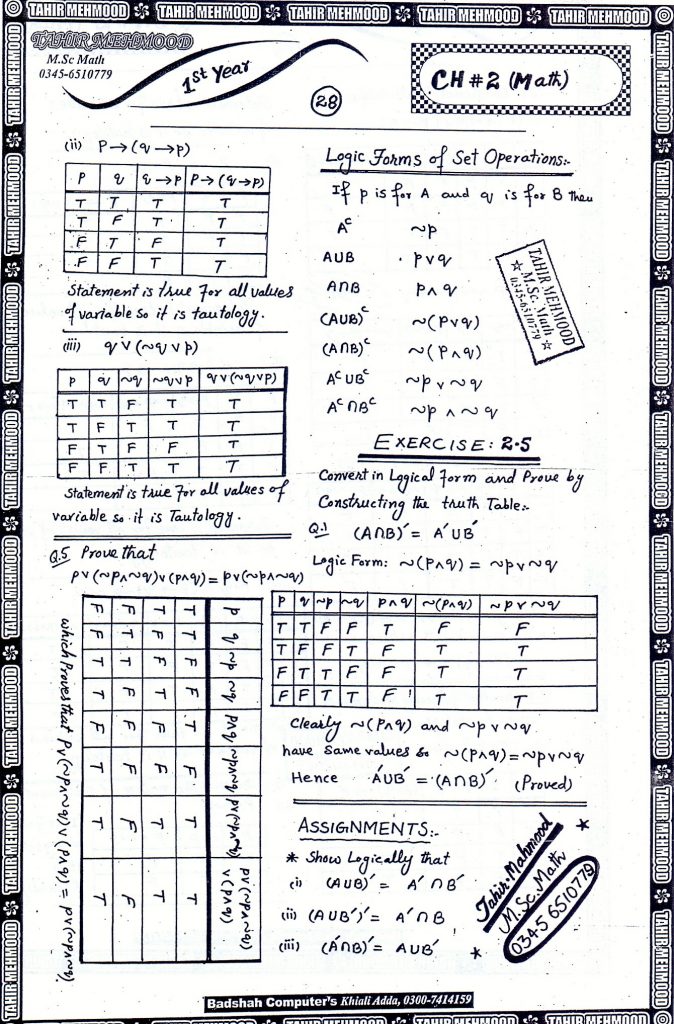 TAHIR MEHMOOD TAHIR MEHMOOD TAHIR MEHMOOD TAHIR MEHMOOD TAHIR MEHMOOD
TAHIR MEHMOOD
M.Sc Math
0345-6510779
1st Year
CH # 2 (Math)
28
(ii) P→(q→p)
P q q→p P→(q→p)
T T T T
T F T T
F T F T
F F T T
Statement is true for all values
of variable so it is tautology.
(iii) q∨(~q∨p)
p q ~q ~q∨p q∨(~q∨p)
T T F T T
T F T T T
F T F F T
F F T T T
Statement is true for all values of
variable so it is Tautology.
Q.5 Prove that
p∨(~p∧~q)∨(p∧q)=p∨(~p∧~q)
p q ~p ~q p∧q ~p∧~q p∨(~p∧~q) p∨(~p∧~q)∨(p∧q)
T T F F T F T T
T F F T F F T T
F T T F F F F F
F F T T F T T T
which proves that p∨(~p∧~q)∨(p∧q) = p∨(~p∧~q)
Logic Forms of Set Operations:-
If p is for A and q is for B then
Aᶜ ~p
A∪B p∨q
A∩B p∧q
(A∪B)ᶜ ~(p∨q)
(A∩B)ᶜ ~(p∧q)
Aᶜ∪Bᶜ ~p∨~q
Aᶜ∩Bᶜ ~p∧~q
TAHIR MEHMOOD
☆ M.Sc. Math ☆
0345-6510779
EXERCISE: 2.5
Convert in Logical form and Prove by
Constructing the truth Table:-
Q.1 (A∩B)′ = A′∪B′
Logic Form: ~(p∧q) = ~p∨~q
P q ~p ~q p∧q ~(p∧q) ~p∨~q
T T F F T F F
T F F T F T T
F T T F F T T
F F T T F T T
Clearly ~(p∧q) and ~p∨~q
have same values so ~(p∧q)=~p∨~q
Hence A′∪B′ = (A∩B)′ (Proved)
ASSIGNMENTS:-
* Show Logically that
(i) (A∪B)′ = A′∩B′
(ii) (A∪B′)′= A′∩B
(iii) (A′∩B)′= A∪B′
Tahir Mahmood
M.Sc. Math
0345 6510779
Badshah Computer's Khiali Adda, 0300-7414159